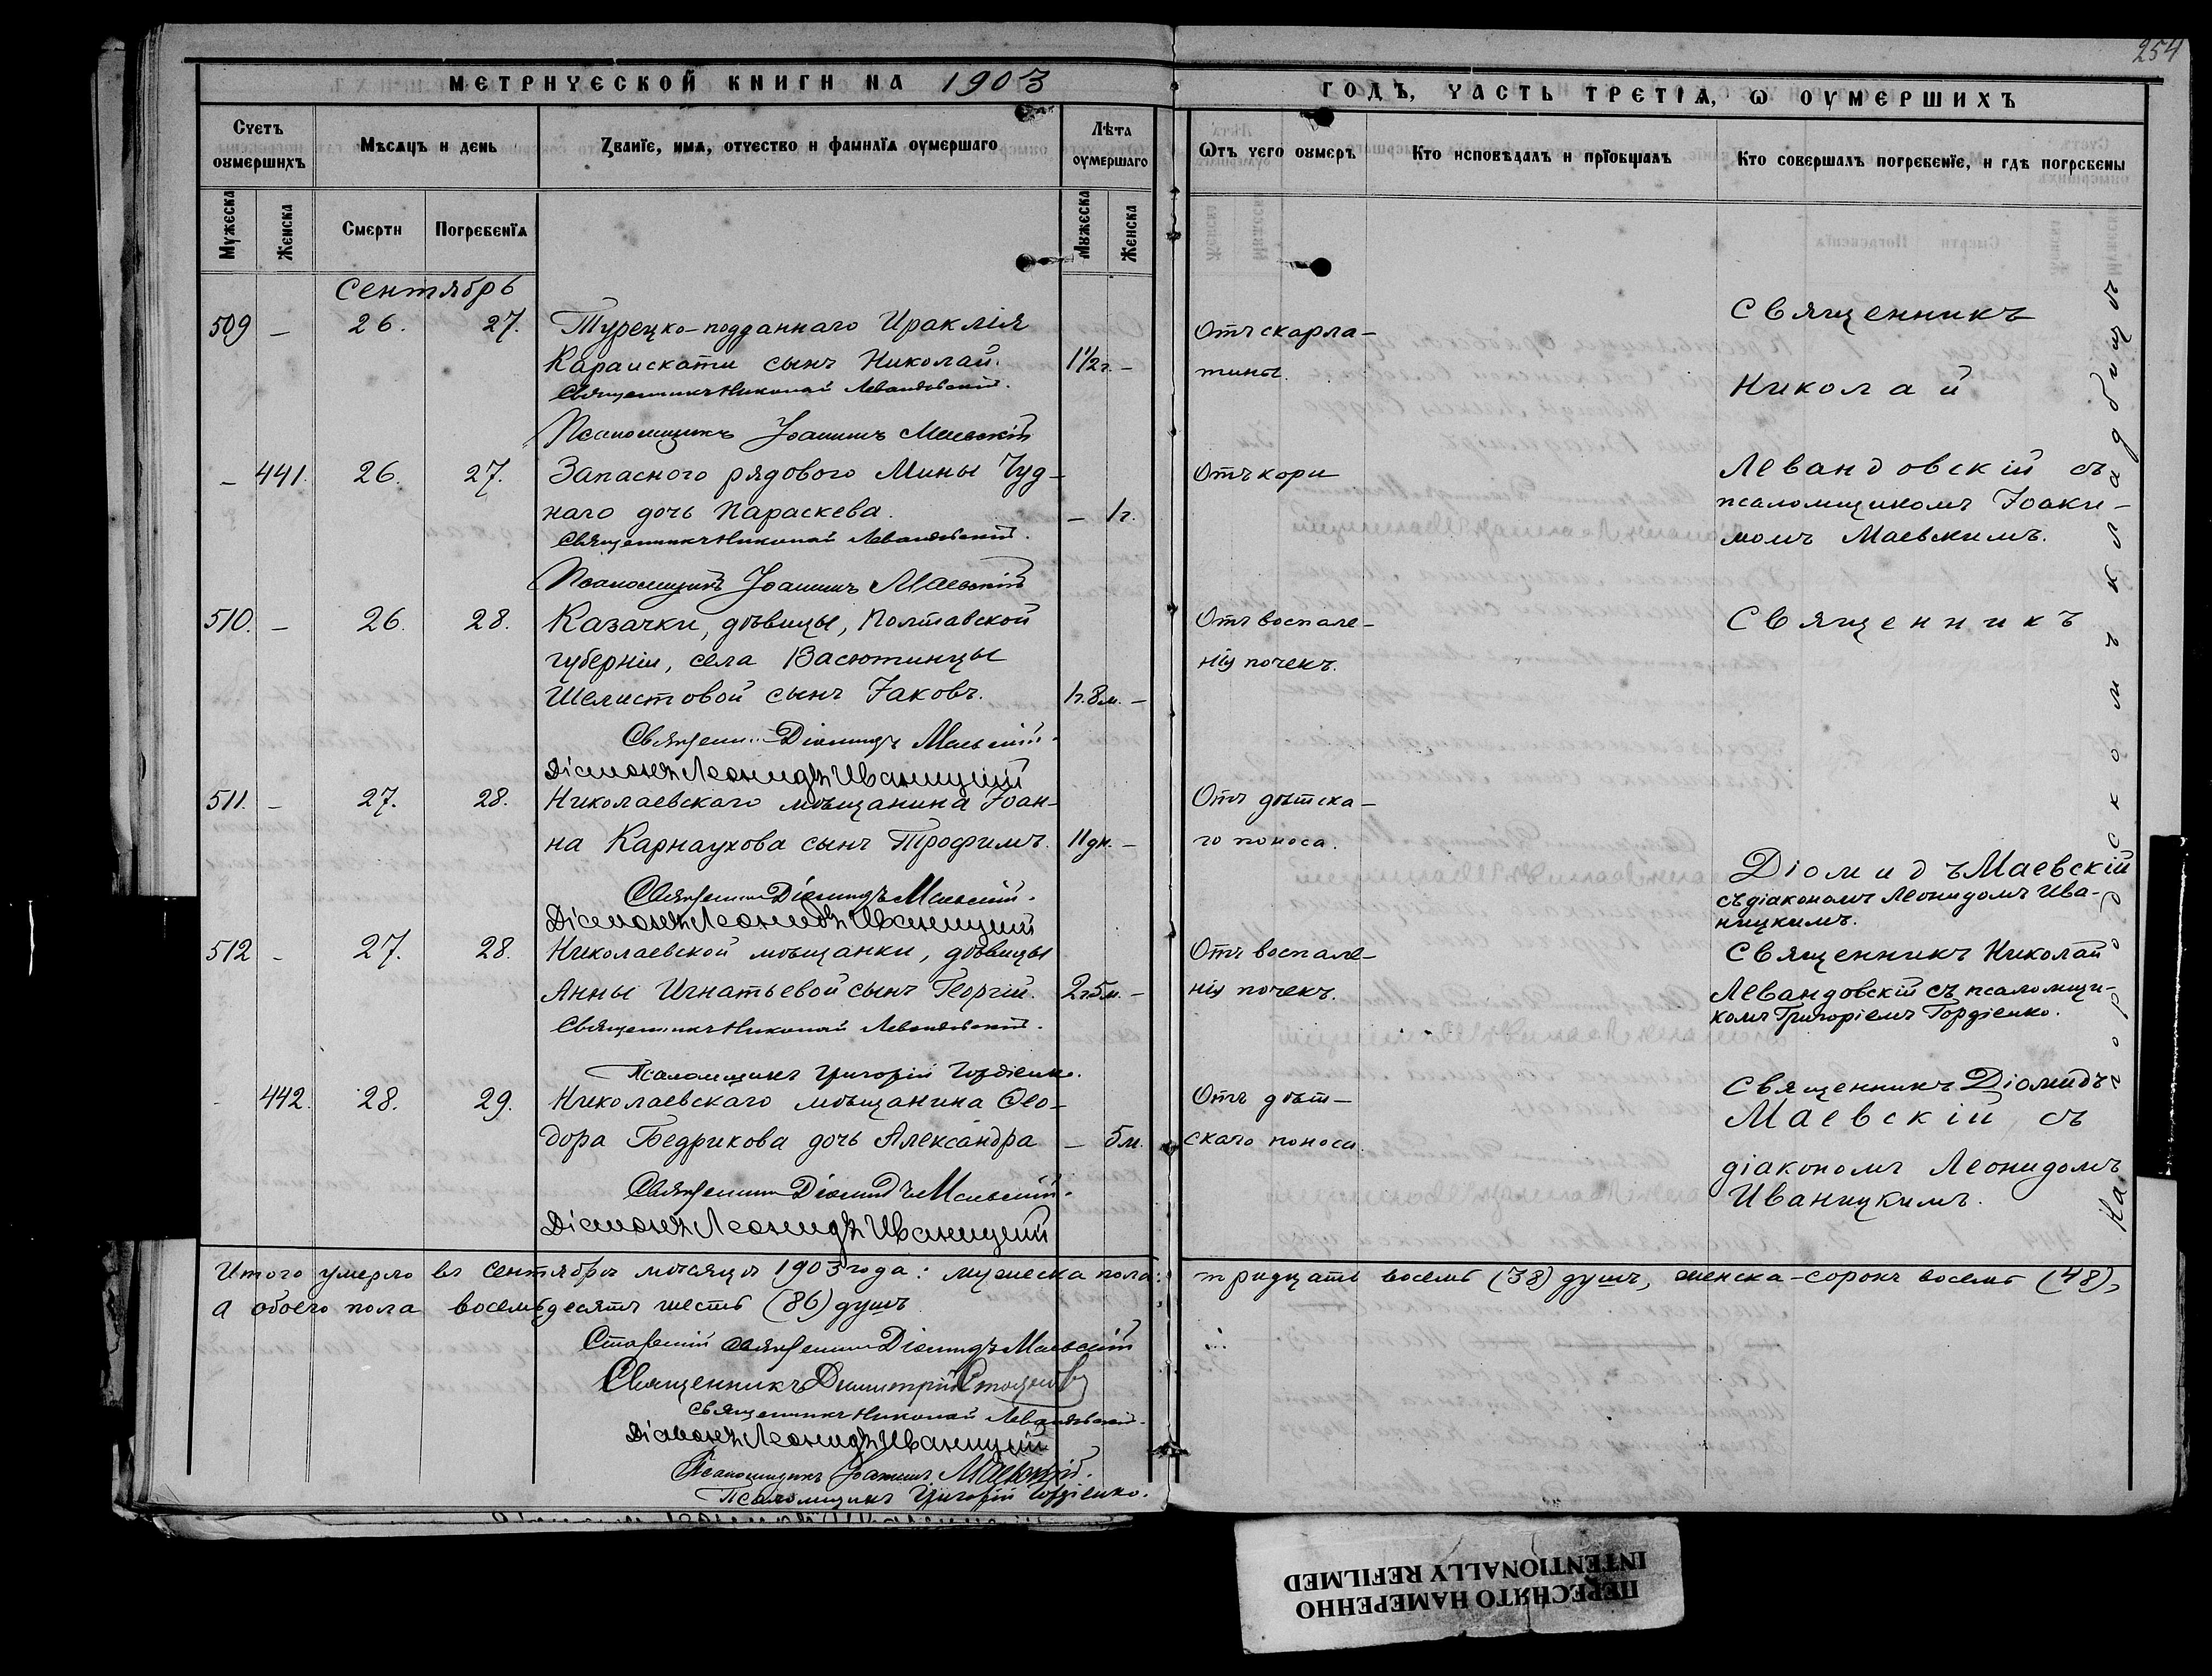 254
МЕТРИЧЕСКОЙ КНИГИ НА 1903
ГОДЪ, ЧАСТЬ ТРЕТІѦ, Ѡ ОУМЕРШИХЪ
Счетъ оумершихъ
Мѣсѧцъ и день
Званїе, имѧ, отчество и фамилїѧ оумершаго
Лѣта оумершаго
Ѿтъ чего оумеръ
Кто исповѣдалъ и прїобщалъ
Кто совершалъ погребенїе, и гдѣ погребены
Мужеска
Женска
Смерти
Погребенїѧ
Мужеска
Женска
Сентябрь
509 – 26. 27. Турецко-подданнаго Ираклія
Караискати сынъ Николай. 1½г. –
Священникъ Николай Левандовскій.
Псаломщикъ Іоакимъ Маевскій
Отъ скарла-
тины.
Священникъ
Николай
– 441. 26. 27. Запасного рядового Мины Чуд-
наго дочь Параскева. – 1г.
Священникъ Николай Левандовскій.
Псаломщикъ Іоакимъ Маевскій
Отъ кори
Левандовскій съ
псаломщикомъ Іоаки-
момъ Маевскимъ.
510. – 26. 28. Казачки, дѣвицы, Полтавской
губерніи, села Васютинцы
Шелистовой сынъ Іаковъ. 1г.8м. –
Священн. Діомидъ Маевскій.
Діаконъ Леонидъ Иваницкій
Отъ воспале-
нія почекъ.
Священникъ
511. – 27. 28. Николаевскаго мѣщанина Іоан-
на Карнаухова сынъ Трофимъ. 11дн. –
Священникъ Діомидъ Маевскій.
Діаконъ Леонидъ Иваницкій
Отъ дѣтска-
го поноса.
Діомидъ Маевскій
съ діакономъ Леонидомъ Ива-
ницкимъ.
512 – 27. 28. Николаевской мѣщанки, дѣвицы
Анны Игнатьевой сынъ Георгій. 2г.5м. –
Священникъ Николай Левандовскій.
Псаломщикъ Григорій Гордіенко.
Отъ воспале-
нія почекъ.
Священникъ Николай
Левандовскій съ псаломщи-
комъ Григоріемъ Гордіенко.
– 442. 28. 29. Николаевскаго мѣщанина Ѳео-
дора Бедрикова дочь Александра – 5м.
Священникъ Діомидъ Маевскій.
Діаконъ Леонидъ Иваницкій
Отъ дѣт-
скаго поноса.
Священникъ Діомидъ
Маевскій съ
діакономъ Леонидомъ
Иваницкимъ.
На городскомъ кладбищѣ
Итого умерло въ сентябрѣ мѣсяцѣ 1903 года: мужеска пола: тридцать восемь (38) душъ, женска-сорокъ восемь (48),
а обоего пола восемьдесятъ шесть (86) душъ
Старшій священникъ Діомидъ Маевскій
Священникъ Димитрій
Священникъ Николай Левандовскій.
Діаконъ Леонидъ Иваницкій
Псаломщикъ Іоакимъ Маевскій.
Псаломщикъ Григорій Гордіенко.
ПЕРЕСНЯТО НАМЕРЕННО
INTENTIONALLY REFILMED